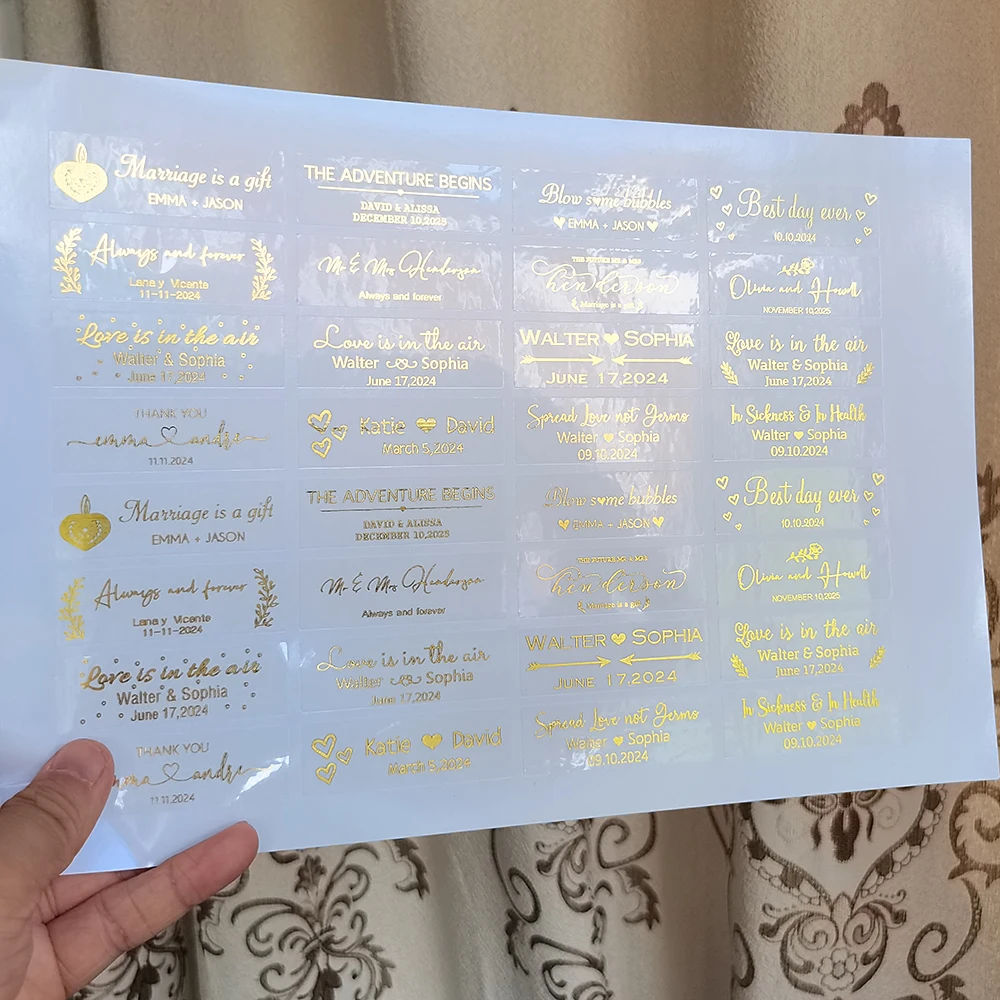 Marriage is a gift
EMMA + JASON
THE ADVENTURE BEGINS
DAVID & ALISSA
DECEMBER 10,2025
Blow some bubbles
EMMA + JASON
Best day ever
10.10.2024
Always and forever
Lana y Vicente
11-11-2024
Mr & Mrs Henderson
Always and forever
THE FUTURE MR. & MRS.
henderson
Marriage is a gift
Olivia and Howell
NOVEMBER 10,2025
Love is in the air
Walter & Sophia
June 17,2024
Love is in the air
Walter Sophia
June 17,2024
WALTER SOPHIA
JUNE 17,2024
Love is in the air
Walter & Sophia
June 17,2024
THANK YOU
emma andre
11.11.2024
Katie David
March 5,2024
Spread Love not Germs
Walter Sophia
09.10.2024
In Sickness & In Health
Walter Sophia
09.10.2024
Marriage is a gift
EMMA + JASON
THE ADVENTURE BEGINS
DAVID & ALISSA
DECEMBER 10,2025
Blow some bubbles
EMMA + JASON
Best day ever
10.10.2024
Always and forever
Lana y Vicente
11-11-2024
Mr & Mrs Henderson
Always and forever
THE FUTURE MR. & MRS.
henderson
Marriage is a gift
Olivia and Howell
NOVEMBER 10,2025
Love is in the air
Walter & Sophia
June 17,2024
Love is in the air
Walter Sophia
June 17,2024
WALTER SOPHIA
JUNE 17.2024
Love is in the air
Walter & Sophia
June 17,2024
THANK YOU
emma andre
11.11.2024
Katie David
March 5,2024
Spread Love not Germs
Walter Sophia
09.10.2024
In Sickness & In Health
Walter Sophia
09.10.2024